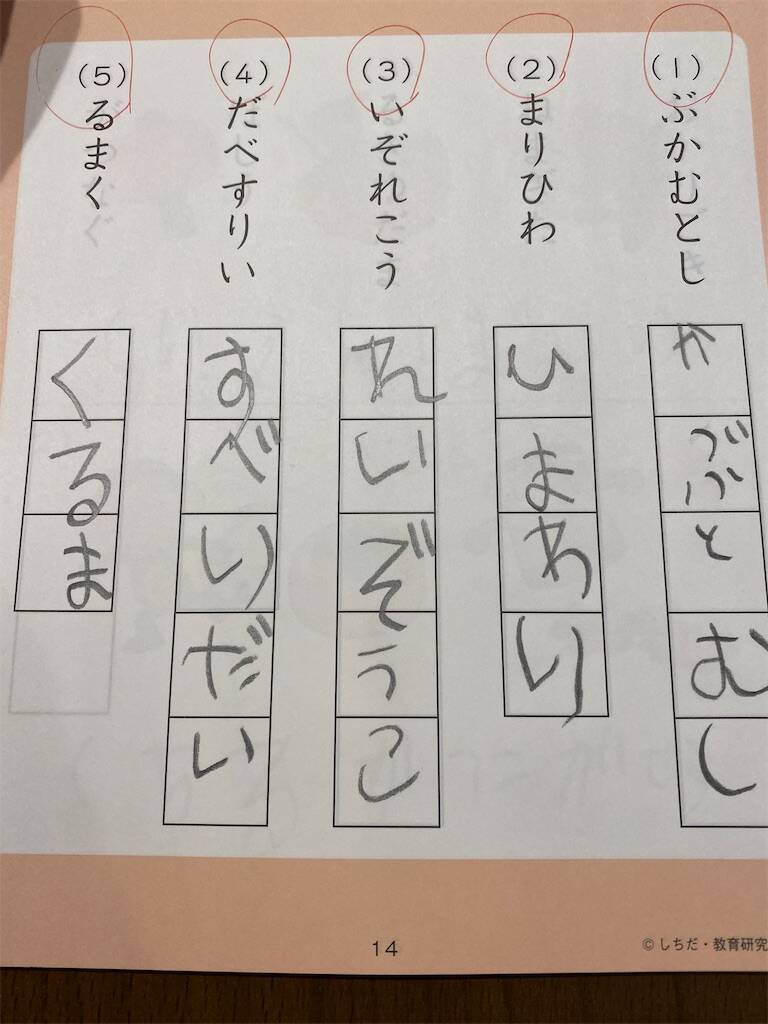 (1)ぶかむとし
かぶとむし
(2)まりひわ
ひまわり
(3)いぞれこう
れいぞうこ
(4)だべすりい
すべりだい
(5)るまく
くるま
14
©しちだ・教育研究